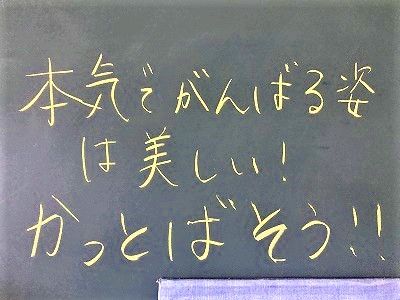 本気でがんばる姿
は美しい!
かっとばそう!!